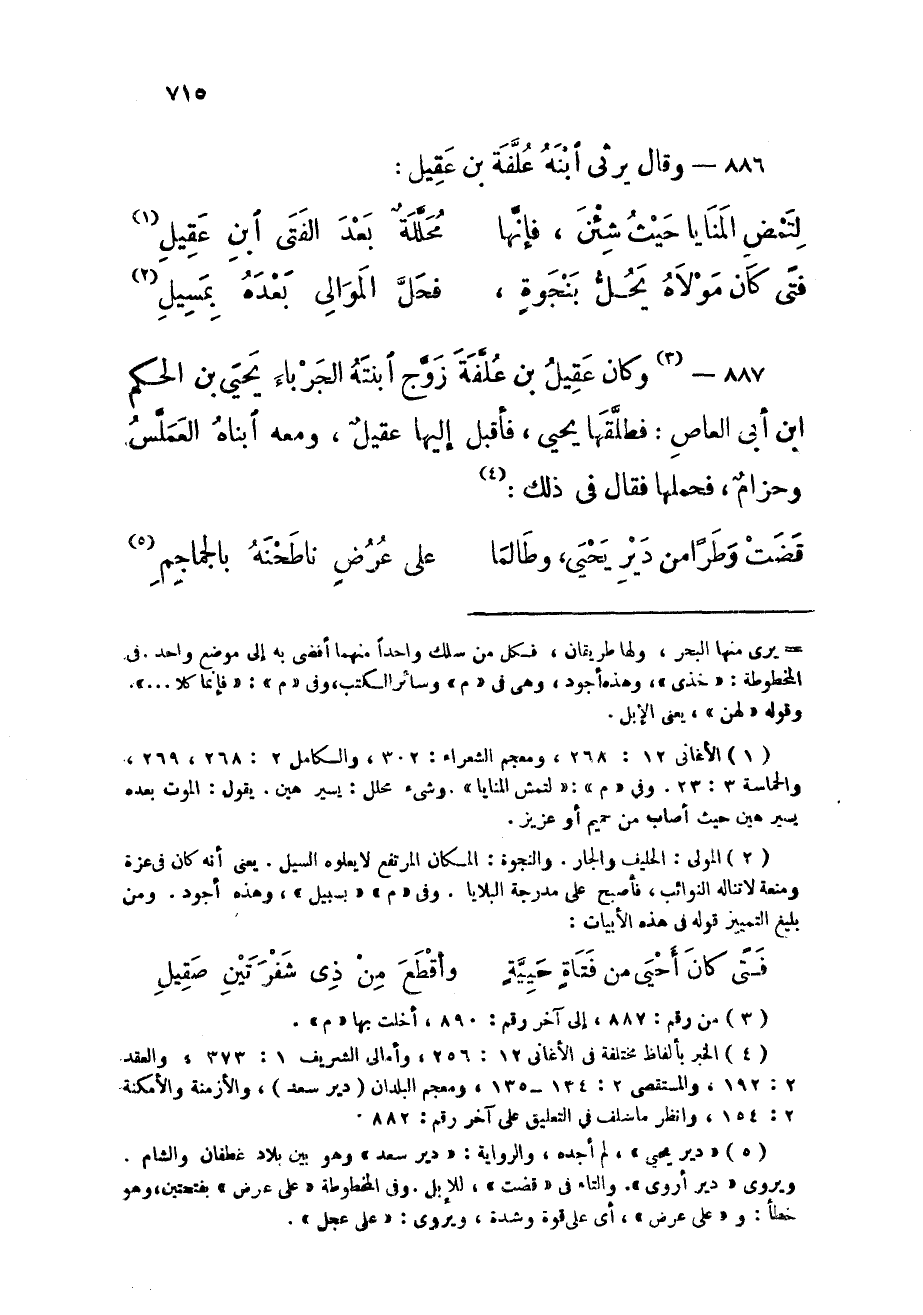 ٧١٥
٨٨٦ — وقال يرثى ٱبْنَهُ عُلَّفَة بن عَقِيل :
لِتَمْضِ المَنَايا حَيْثُ شِئْنَ ، فإنَّها مُحَلَّلَةٌ بَعْدَ الفَتَى ٱبنِ عَقِيلِ (١)
فتًى كَان مَوْلَاهُ يَحُلُّ بِنَجْوةٍ ، فحَلَّ المَوَالِى بَعْدَهُ بِمَسِيلِ (٢)
٨٨٧ — (٣) وكان عَقِيلُ بن عُلَّفَةَ زَوَّج ٱبنتَهُ الجَرْباءَ يَحْيَى بن الحكم
ابن أبى العاصِ : فطلَّقَها يحيى ، فأقبل إليها عقيلٌ ، ومعه ٱبناهُ العَمَلَّسُ
وحزامٌ ، فحملها فقال فى ذلك : (٤)
قَضَتْ وَطَرًا من دَيْرِ يَحْيَى، وطَالمَا على عُرُضٍ ناطَحْنَهُ بالجماجِمِ (٥)
= يرى منها البحر ، ولها طريقان ، فكل من سلك واحداً منهما أفضى به إلى موضع واحد . فى
المخطوطة : « خذى » ، وهذه أجود ، وهى فى « م » وسائر الكتب ، وفى « م » : « فإنما كلا ... » .
وقوله « لهن » ، يعنى الإبل .
( ١ ) الأغانى ١٢ : ٢٦٨ ، ومعجم الشعراء : ٣٠٢ ، والكامل ٢ : ٢٦٨ ، ٢٦٩ ،
والحماسة ٣ : ٢٣ . وفى « م » : « لتمش المنايا » . وشىء محلل : يسير هين . يقول : الموت بعده
يسير هين حيث أصاب من حميم أو عزيز .
( ٢ ) المولى : الحليف والجار . والنجوة : المكان المرتفع لا يعلوه السيل . يعنى أنه كان فى عزة
ومنعة لا تناله النوائب ، فأصبح على مدرجة البلايا . وفى « م » « بسبيل » ، وهذه أجود . ومن
بليغ التمييز قوله فى هذه الأبيات :
فَتًى كانَ أَحْيَى من فَتَاةٍ حَيِيَّةٍ وأقْطَعَ مِنْ ذِى شَفْرَتَيْنِ صَقِيلِ
( ٣ ) من رقم : ٨٨٧ ، إلى آخر رقم : ٨٩٠ ، أخلت بها « م » .
( ٤ ) الخبر بألفاظ مختلفة فى الأغانى ١٢ : ٢٥٦ ، وأمالى الشريف ١ : ٣٧٣ ، والعقد
٢ : ١٩٢ ، والمستقصى ٢ : ١٣٤ — ١٣٥ ، ومعجم البلدان ( دير سعد ) ، والأزمنة والأمكنة
٢ : ١٥٤ ، وانظر ما سلف فى التعليق على آخر رقم : ٨٨٢ .
( ٥ ) « دير يحيى » ، لم أجده ، والرواية : « دير سعد » وهو بين بلاد غطفان والشام .
ويروى « دير أروى » . والتاء فى « قضت » ، للإبل . وفى المخطوطة « على عرض » بفتحتين ، وهو
خطأ : و « على عرض » ، أى على قوة وشدة ، ويروى : « على عجل » .